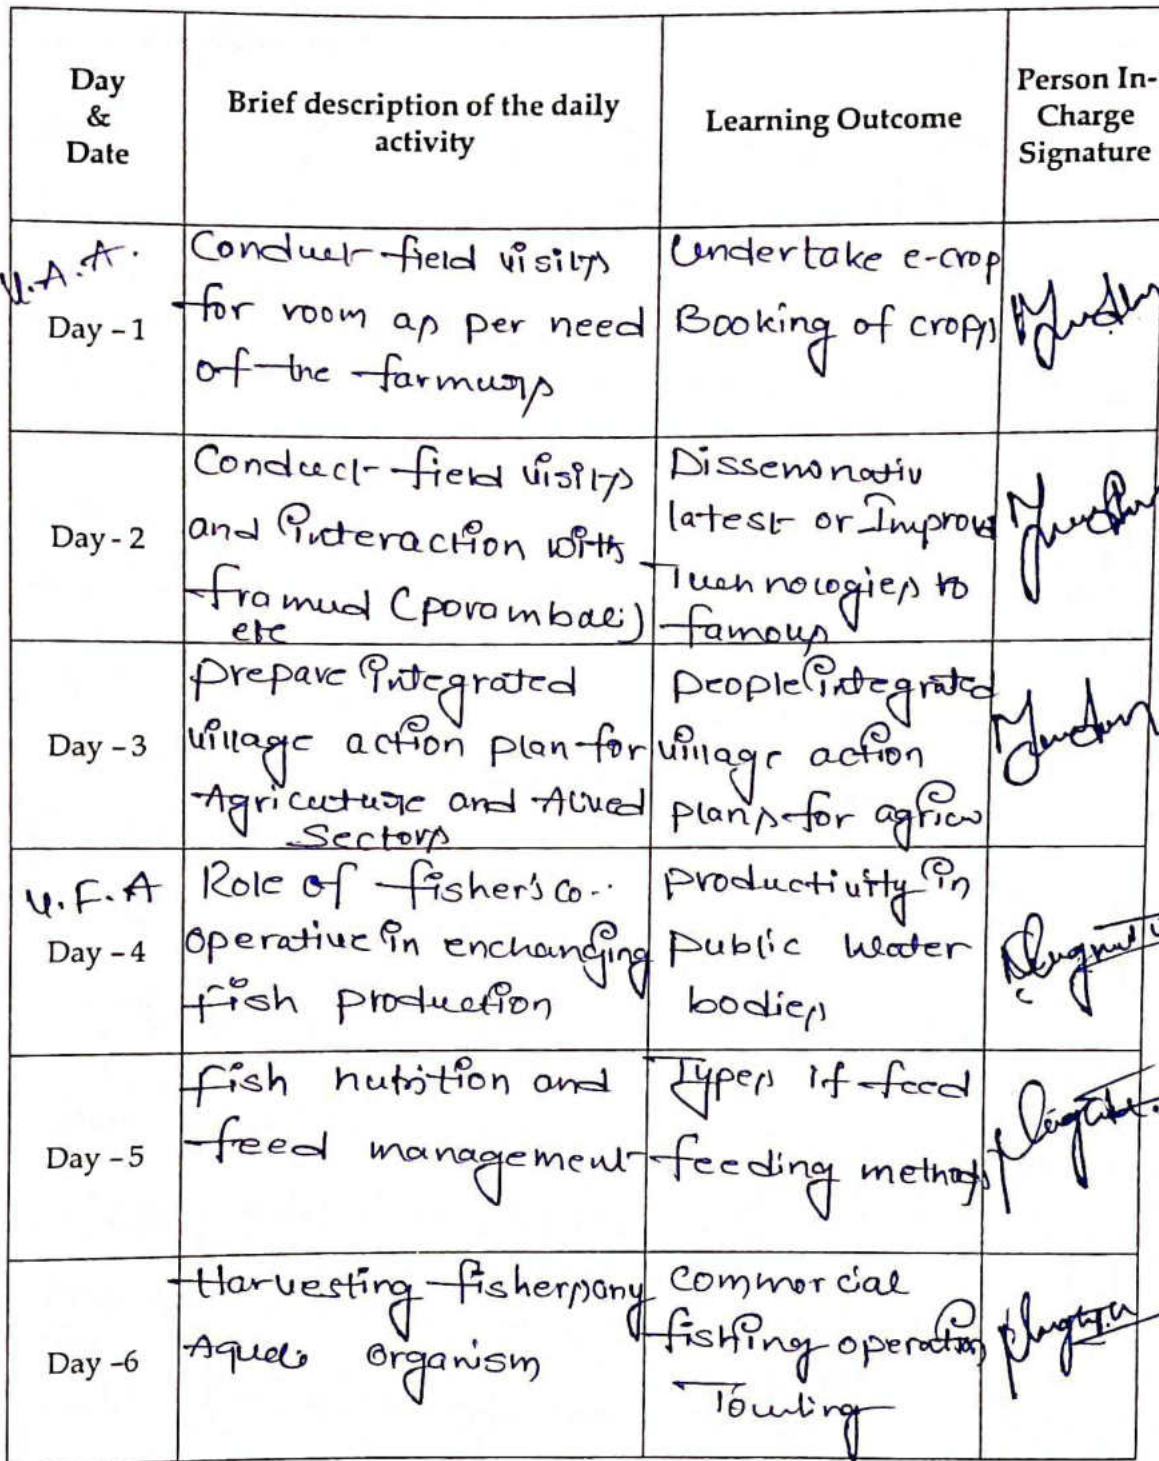 Day
&
Date
Brief description of the daily
activity
Learning Outcome
Person In-
Charge
Signature
V.A.A.
Day - 1
Conduct field visits
for room as per need
of the farmers
Undertake e-crop
Booking of crops
Day - 2
Conduct field visits
and interaction with
framud (porambai)
etc
Dissemonativ
latest or Improve
Tuehnologies to
famous
Day - 3
prepare integrated
village action plan for
Agriculture and Allied
Sectors
people integrated
village action
plans for agricu
V.F.A
Day - 4
Role of fisher's co-
operative in enchanging
fish production
productivity in
public water
bodies
Day - 5
fish nutrition and
feed management
Types if feed
feeding methods
Day -6
Harvesting
organism
commorcial
fishing operation